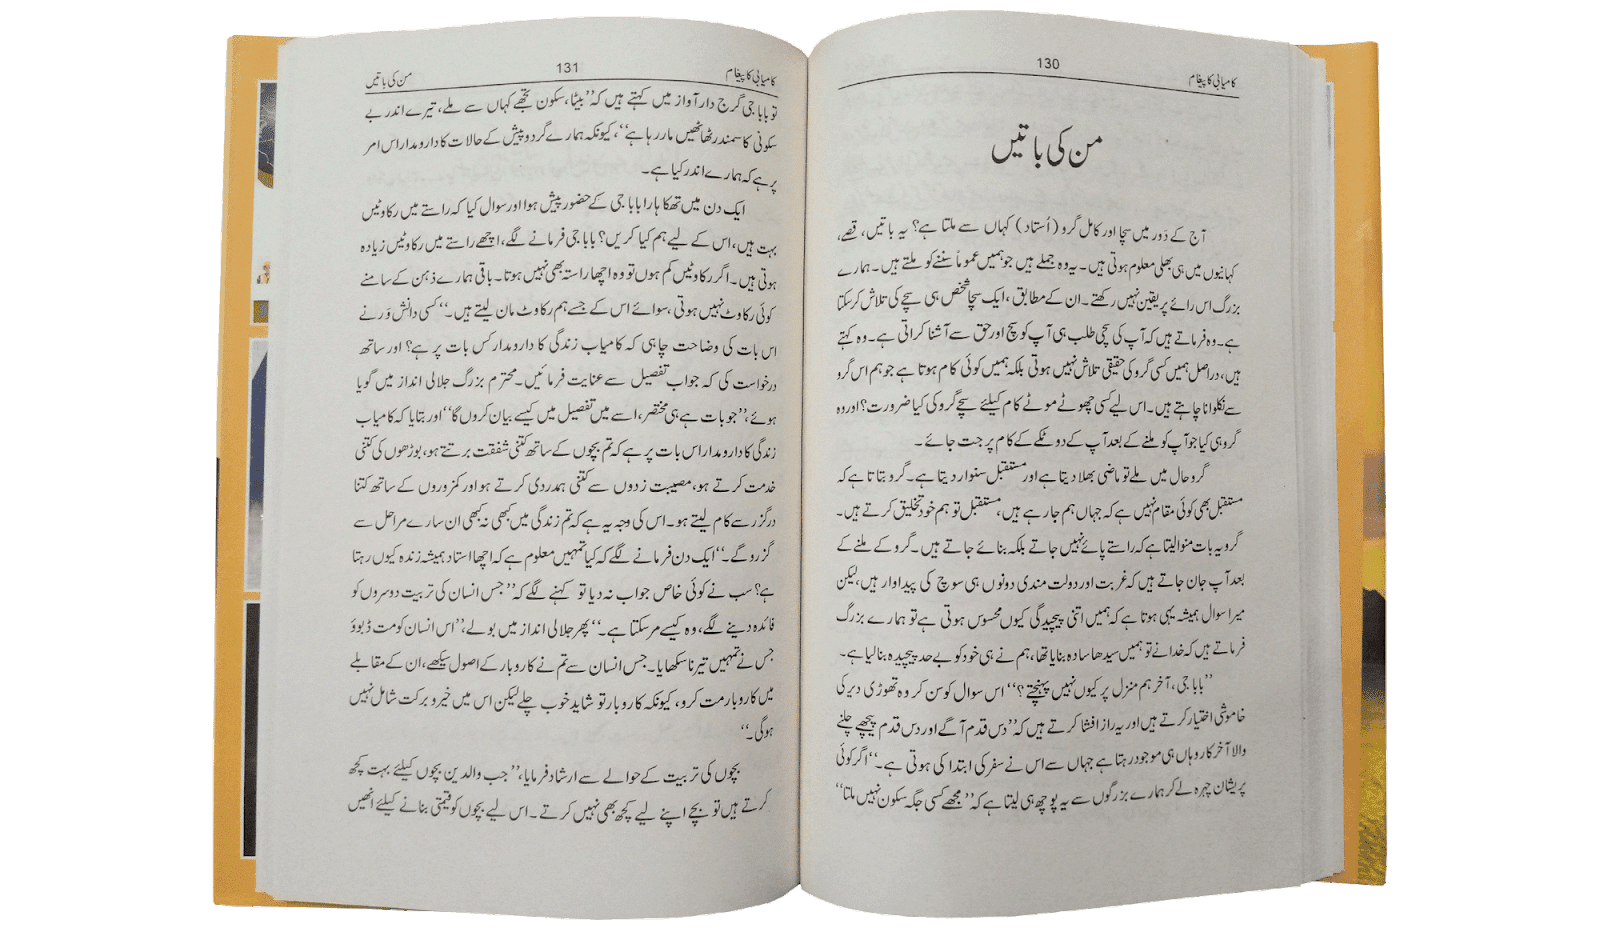 کامیابی کا پیغام
130
من کی باتیں
آج کے دَور میں سچا اور کامل گرو (اُستاد) کہاں سے ملتا ہے؟ یہ باتیں، قصے،
کہانیوں میں ہی بھلی معلوم ہوتی ہیں۔ یہ وہ جملے ہیں جو ہمیں عموماً سننے کو ملتے ہیں۔ ہمارے
بزرگ اس رائے پر یقین نہیں رکھتے۔ ان کے مطابق، ایک سچا شخص ہی سچے کی تلاش کر سکتا
ہے۔ وہ فرماتے ہیں کہ آپ کی سچی طلب ہی آپ کو سچ اور حق سے آشنا کراتی ہے۔ وہ کہتے
ہیں، دراصل ہمیں کسی گرو کی حقیقی تلاش نہیں ہوتی بلکہ ہمیں کوئی کام ہوتا ہے جو ہم اس گرو
سے نکلوانا چاہتے ہیں۔ اس لیے کسی چھوٹے موٹے کام کیلئے سچے گرو کی کیا ضرورت؟ اور وہ
گرو ہی کیا جو آپ کو ملنے کے بعد آپ کے دو ٹکے کے کام پر جت جائے۔
گرو حال میں ملے تو ماضی بھلا دیتا ہے اور مستقبل سنوار دیتا ہے۔ گرو بتاتا ہے کہ
مستقبل بھی کوئی مقام نہیں ہے کہ جہاں ہم جا رہے ہیں، مستقبل تو ہم خود تخلیق کرتے ہیں۔
گرو یہ بات منوا لیتا ہے کہ راستے پائے نہیں جاتے بلکہ بنائے جاتے ہیں۔ گرو کے ملنے کے
بعد آپ جان جاتے ہیں کہ غربت اور دولت مندی دونوں ہی سوچ کی پیداوار ہیں، لیکن
میرا سوال ہمیشہ یہی ہوتا ہے کہ ہمیں اتنی پیچیدگی کیوں محسوس ہوتی ہے تو ہمارے بزرگ
فرماتے ہیں کہ خدا نے تو ہمیں سیدھا سادہ بنایا تھا، ہم نے ہی خود کو بے حد پیچیدہ بنا لیا ہے۔
”بابا جی، آخر ہم منزل پر کیوں نہیں پہنچتے؟“ اس سوال کو سن کر وہ تھوڑی دیر کی
خاموشی اختیار کرتے ہیں اور یہ راز افشا کرتے ہیں کہ ”دس قدم آگے اور دس قدم پیچھے چلنے
والا آخر کار وہاں ہی موجود رہتا ہے جہاں سے اس نے سفر کی ابتدا کی ہوتی ہے۔“ اگر کوئی
پریشان چہرہ لے کر ہمارے بزرگوں سے یہ پوچھ ہی لیتا ہے کہ ”مجھے کسی جگہ سکون نہیں ملتا“
کامیابی کا پیغام
131
من کی باتیں
تو بابا جی گرج دار آواز میں کہتے ہیں کہ ”بیٹا، سکون تجھے کہاں سے ملے، تیرے اندر بے
سکونی کا سمندر ٹھاٹھیں مار رہا ہے“، کیونکہ ہمارے گرد و پیش کے حالات کا دارومدار اس امر
پر ہے کہ ہمارے اندر کیا ہے۔
ایک دن میں تھکا ہارا بابا جی کے حضور پیش ہوا اور سوال کیا کہ راستے میں رکاوٹیں
بہت ہیں، اس کے لیے ہم کیا کریں؟ بابا جی فرمانے لگے، اچھے راستے میں رکاوٹیں زیادہ
ہوتی ہیں۔ اگر رکاوٹیں کم ہوں تو وہ اچھا راستہ بھی نہیں ہوتا۔ باقی ہمارے ذہن کے سامنے
کوئی رکاوٹ نہیں ہوتی، سوائے اس کے جسے ہم رکاوٹ مان لیتے ہیں۔“ کسی دانش وَر نے
اس بات کی وضاحت چاہی کہ کامیاب زندگی کا دارومدار کس بات پر ہے؟ اور ساتھ
درخواست کی کہ جواب تفصیل سے عنایت فرمائیں۔ محترم بزرگ جلالی انداز میں گویا
ہوئے، ”جو بات ہے ہی مختصر، اسے میں تفصیل میں کیسے بیان کروں گا“ اور بتایا کہ کامیاب
زندگی کا دارومدار اس بات پر ہے کہ تم بچوں کے ساتھ کتنی شفقت برتتے ہو، بوڑھوں کی کتنی
خدمت کرتے ہو، مصیبت زدوں سے کتنی ہمدردی کرتے ہو اور کمزوروں کے ساتھ کتنا
درگزر سے کام لیتے ہو۔ اس کی وجہ یہ ہے کہ تم زندگی میں کبھی نہ کبھی ان سارے مراحل سے
گزرو گے۔“ ایک دن فرمانے لگے کہ کیا تمہیں معلوم ہے کہ اچھا استاد ہمیشہ زندہ کیوں رہتا
ہے؟ سب نے کوئی خاص جواب نہ دیا تو کہنے لگے کہ ”جس انسان کی تربیت دوسروں کو
فائدہ دینے لگے، وہ کیسے مر سکتا ہے۔“ پھر جلالی انداز میں بولے، ”اس انسان کو مت ڈبوؤ
جس نے تمہیں تیرنا سکھایا۔ جس انسان سے تم نے کاروبار کے اصول سیکھے، ان کے مقابلے
میں کاروبار مت کرو، کیونکہ کاروبار تو شاید خوب چلے لیکن اس میں خیر و برکت شامل نہیں
ہوگی۔“
بچوں کی تربیت کے حوالے سے ارشاد فرمایا، ”جب والدین بچوں کیلئے بہت کچھ
کرتے ہیں تو بچے اپنے لیے کچھ بھی نہیں کرتے۔ اس لیے بچوں کو قیمتی بنانے کیلئے انھیں